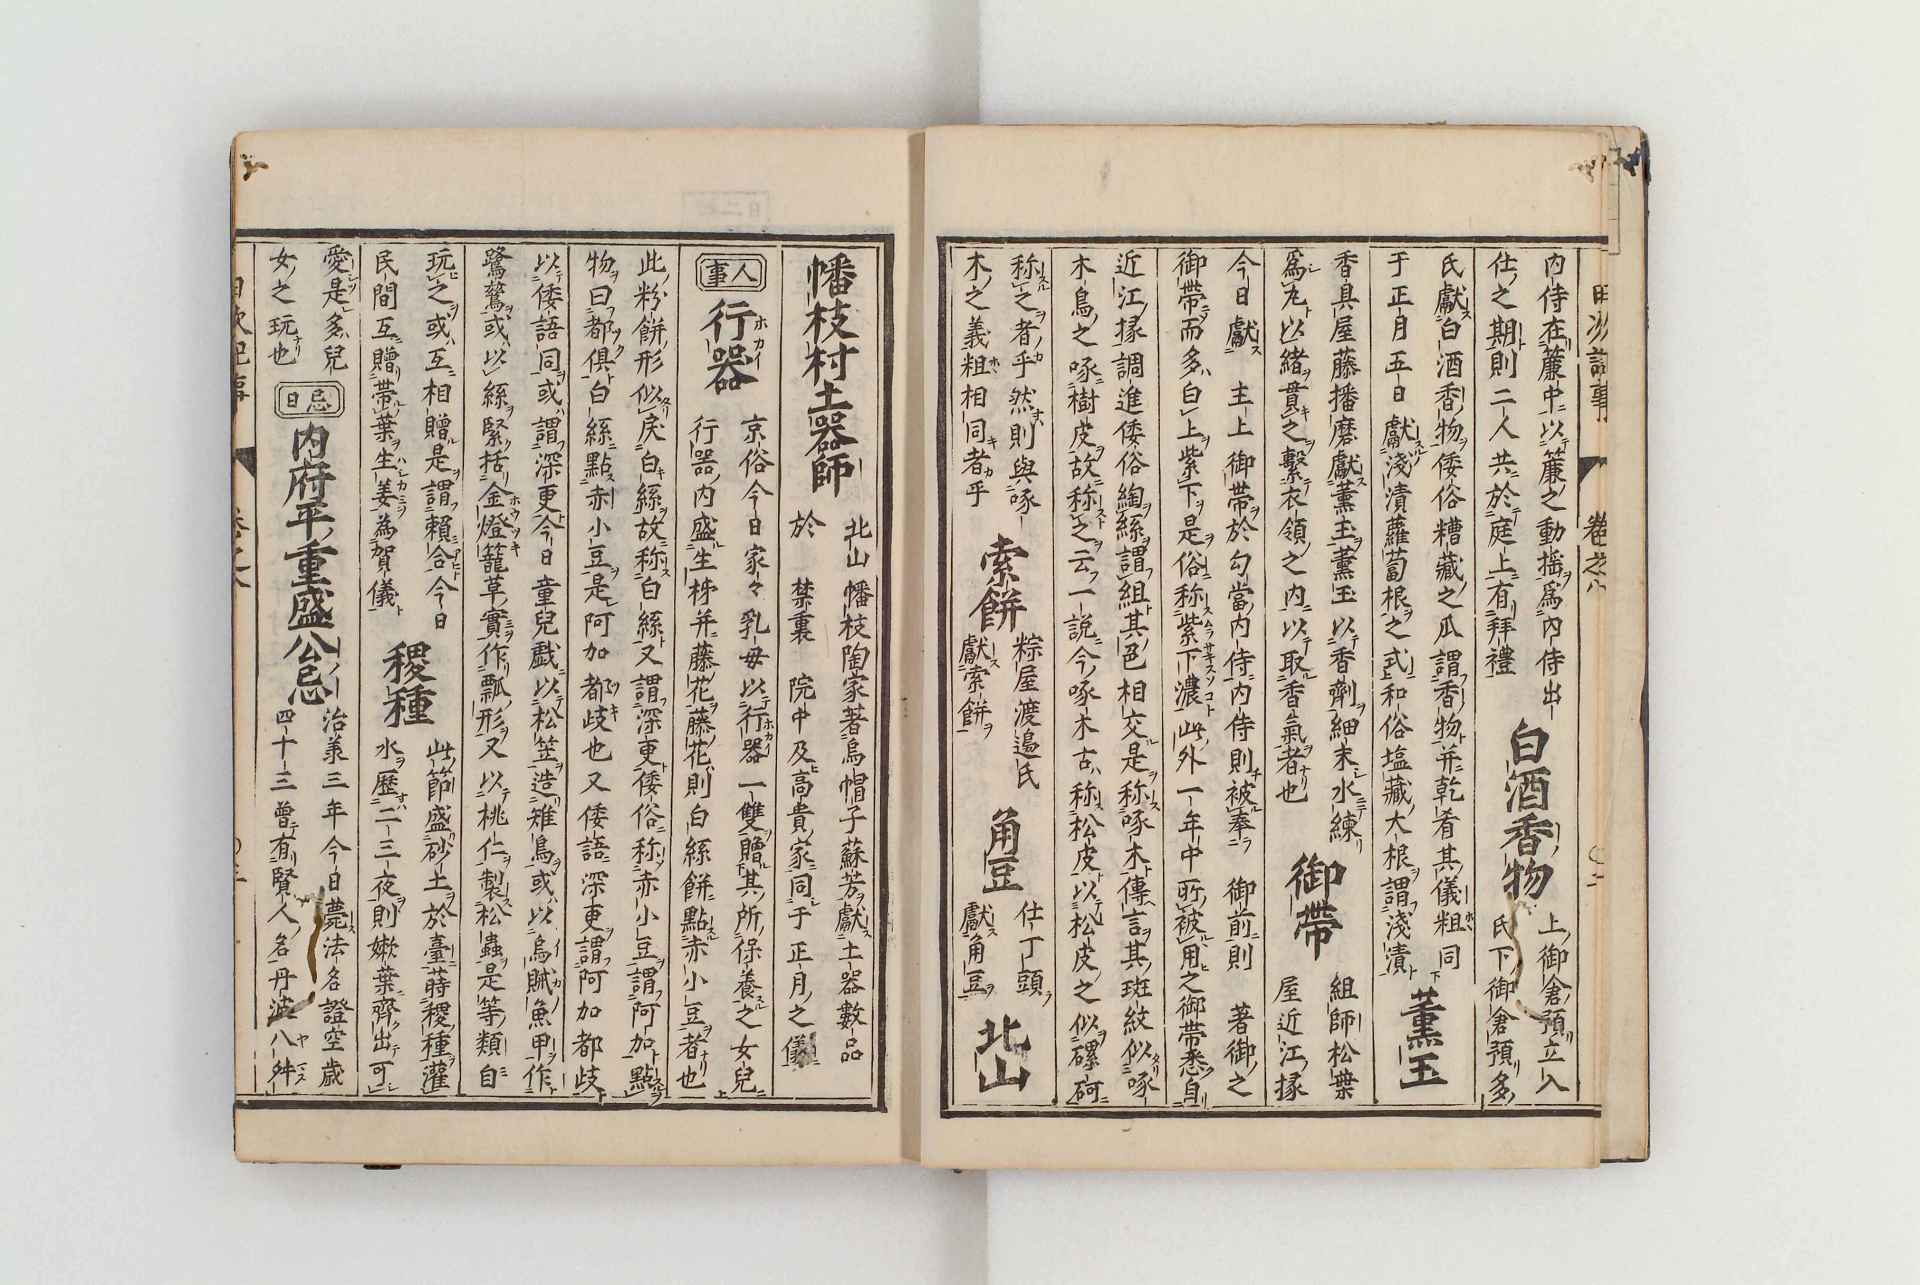 日次記事 卷之八
内侍在簾中以簾之動揺爲内侍出
仕之期則二人共於庭上有拜禮
白酒香物
上御倉預立入
氏下御倉預多
氏獻白酒香物倭俗糟藏之瓜謂香物并乾肴其儀粗同
于正月五日獻淺漬蘿蔔根之式和俗塩藏大根謂淺漬
薰玉
香具屋藤播磨獻薰玉薰玉以香劑細末水練
爲丸以緒貫之繫衣領之内以取香氣者也
御帶
組師松葉
屋近江掾
今日獻 主上御帶於勾當内侍内侍則被奉 御前則 著御之
御帶而多白上紫下是俗称紫下濃此外一年中所被用之御帶悉自
近江掾調進倭俗綯絲謂組其色相交是称啄木傳言其斑紋似啄
木鳥之啄樹皮故称之云一説今啄木古称松皮以松皮之似磥砢
称之者乎然則與啄
木之義粗相同者乎
索餅
粽屋渡邉氏
獻索餅
角豆
仕丁頭
獻角豆
北山
幡枝村土器師
北山幡枝陶家著烏帽子蘇芳獻土器數品
於 禁裏 院中及高貴家同于正月之儀
人事
行器
京俗今日家々乳母以行器一雙贈其所保養之女兒
行器内盛生柹并藤花藤花則白絲餅點赤小豆者也
此粉餅形似戻白絲故称白絲又謂深更倭俗称赤小豆謂阿加點
物曰都倶白絲點赤小豆是阿加都歧也又倭語深更謂阿加都歧
以倭語同或謂深更今日童兒戲以松笠造雉鳥或以烏賊魚甲作
鷺鶿或以絲緊括金燈籠草實作瓢形又以桃仁製松蟲是等類自
玩之或互相贈是謂賴合今日
民間互贈帶葉生姜為賀儀
稷種
此節盛砂土於臺蒔稷種灌
水歷二三夜則嫩葉齊出可
愛是多兒
女之玩也
忌日
内府平重盛公忌
治義三年今日薨法名證空歳
四十三曽有賢人名丹波八舛
日次記事 卷之八